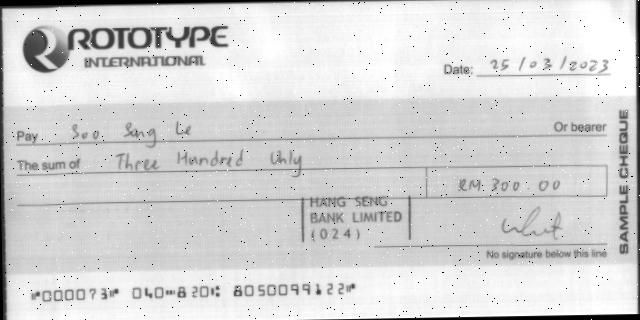 ROTOTYPE
INTERNATIONAL
Date: 25/03/2023
Pay Soo Seng Le Or bearer
The sum of Three Hundred Only
RM 300 00
HANG SENG
BANK LIMITED
(024)
No signature below this line
SAMPLE CHEQUE
⑈000073⑈ 040⑉820⑆ 8050099122⑈